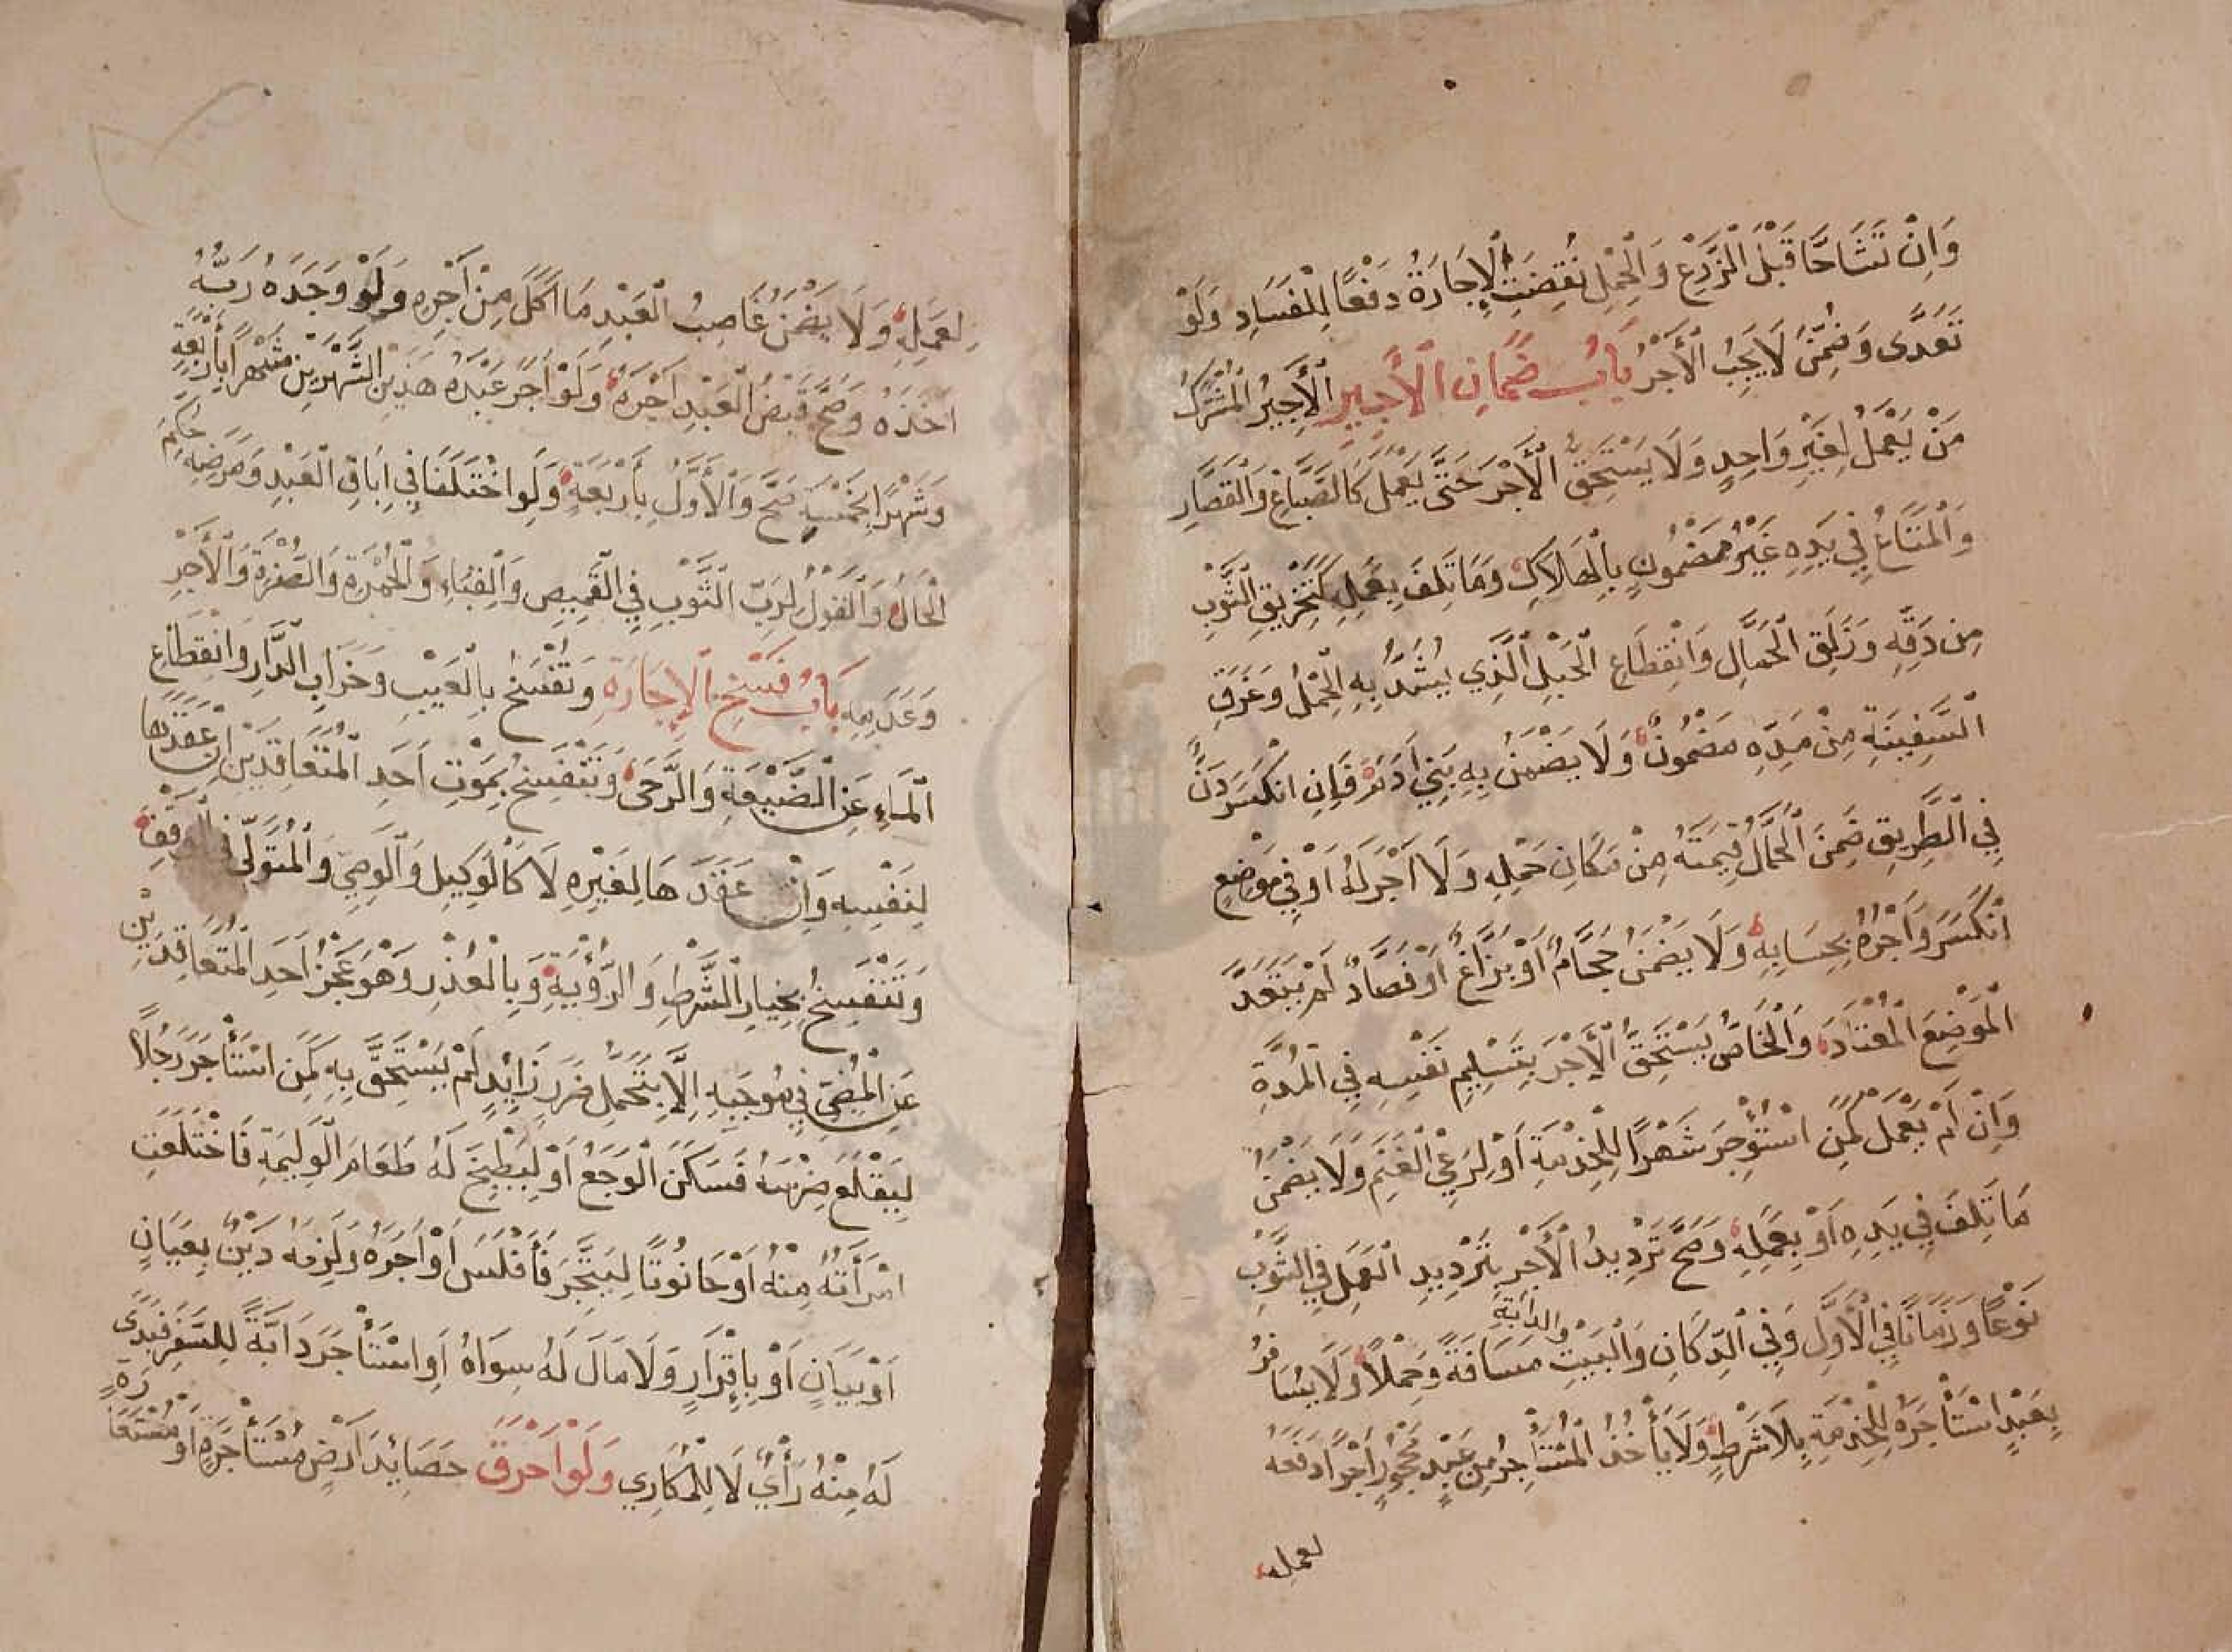 وَاِنْ تَشَاحَّا قَبْلَ الْزَّرْعِ وَالْحَمْلِ نُقِضَتِ الْإِجَارَةُ دَفْعًا لِلْفَسَادِ وَلَوْ
تَعَدَّى وَضَمِنَ لَا يَجِبُ الْأَجْرُ بَابُ ضَمَانِ الْأَجِيرِ الْأَجِيرُ الْمُشْتَرَكُ
مَنْ يَعْمَلُ لِغَيْرِ وَاحِدٍ وَلَا يَسْتَحِقُّ الْأَجْرَ حَتَّى يَعْمَلَ كَالصَّبَّاغِ وَالْقَصَّارِ
وَالْمَتَاعُ فِي يَدِهِ غَيْرُ مَضْمُونٍ بِالْهَلَاكِ وَمَا تَلِفَ بِعَمَلِهِ كَتَخْرِيقِ الثَّوْبِ
مِنْ دَقِّهِ وَزَلَقِ الْحَمَّالِ وَانْقِطَاعِ الْحَبْلِ الَّذِي يُشَدُّ بِهِ الْحِمْلُ وَغَرَقِ
السَّفِينَةِ مِنْ مَدِّهِ مَضْمُونٌ وَلَا يَضْمَنُ بِهِ بَنِي اٰدَمَ فَاِنِ انْكَسَرَ دَنٌّ
فِي الطَّرِيقِ ضَمِنَ الْحَمَّالُ قِيمَتَهُ مِنْ مَكَانِ حَمْلِهِ وَلَا اَجْرَ لَهُ اَوْ فِي مَوْضِعِ
انْكَسَرَ وَاَجْرُهُ بِحِسَابِهِ وَلَا يَضْمَنُ حَجَّامٌ اَوْ بَزَّاغٌ اَوْ فَصَّادٌ لَمْ يَتَعَدَّ
الْمَوْضِعَ الْمُعْتَادَ وَالْخَاصُّ يَسْتَحِقُّ الْأَجْرَ بِتَسْلِيمِ نَفْسِهِ فِي الْمُدَّةِ
وَاِنْ لَمْ يَعْمَلْ كَمَنِ اسْتُؤْجِرَ شَهْرًا لِلْخِدْمَةِ اَوْ لِرَعْيِ الْغَنَمِ وَلَا يَضْمَنُ
مَا تَلِفَ فِي يَدِهِ اَوْ بِعَمَلِهِ وَصَحَّ تَرْدِيدُ الْأَجْرِ بِتَرْدِيدِ الْعَمَلِ فِي الثَّوْبِ
نَوْعًا وَزَمَانًا فِي الْأَوَّلِ وَفِي الدُّكَانِ وَالْبَيْتِ وَالدَابَّةِ مَسَافَةً وَحِمْلًا وَلَا يُسَافِرُ
بِعَبْدٍ اسْتَأْجَرَهُ لِلْخِدْمَةِ بِلَا شَرْطٍ وَلَا يَأْخُذُ الْمُسْتَأْجِرُ مِنْ عَبْدٍ مَحْجُورٍ اَجْرًا دَفَعَهُ
لعمله
لِعَمَلِهِ وَلَا يَضْمَنُ غَاصِبُ الْعَبْدِ مَا اَكَلَ مِنْ اَجْرِهِ وَلَوْ وَجَدَهُ رَبُّهُ
اَخَذَهُ وَصَحَّ قَبْضُ الْعَبْدِ اَجْرَهُ وَلَوْ اٰجَرَ عَبْدَهُ هَذَيْنِ الشَّهْرَيْنِ شَهْرًا بِأَرْبَعَةٍ
وَشَهْرًا بِخَمْسَةٍ صَحَّ وَالْأَوَّلُ بِأَرْبَعَةٍ وَلَوِ اخْتَلَفَا فِي اِبَاقِ الْعَبْدِ وَمَرَضِهِ حُكِّمَ
الْحَالُ وَالْقَوْلُ لِرَبِّ الثَّوْبِ فِي الْقَمِيصِ وَالْقَبَاءِ وَالْحُمْرَةِ وَالصُّفْرَةِ وَالْأَجْرِ
وَعَدَمِهِ بَابُ فَسْخِ الْإِجَارَةِ وَتُفْسَخُ بِالْعَيْبِ وَخَرَابِ الدَّارِ وَانْقِطَاعِ
الْمَاءِ عَنِ الضَّيْعَةِ وَالرَّحَى وَتَنْفَسِخُ بِمَوْتِ اَحَدِ الْمُتَعَاقِدَيْنِ اِنْ عَقَدَهَا
لِنَفْسِهِ وَاِنْ عَقَدَهَا لِغَيْرِهِ لَا كَالْوَكِيلِ وَالْوَصِيِّ وَالْمُتَوَلِّي فِي الْوَقْفِ
وَتَنْفَسِخُ بِخِيَارِ الشَّرْطِ وَالرُّؤْيَةِ وَبِالْعُذْرِ وَهُوَ عَجْزُ اَحَدِ الْمُتَعَاقِدَيْنِ
عَنِ الْمُضِيِّ فِي مُوجَبِهِ اِلَّا بِتَحَمُّلِ ضَرَرٍ زَائِدٍ لَمْ يُسْتَحَقَّ بِهِ كَمَنِ اسْتَأْجَرَ رَجُلًا
لِيَقْلَعَ ضِرْسَهُ فَسَكَنَ الْوَجَعُ اَوْ لِيَطْبِخَ لَهُ طَعَامَ الْوَلِيمَةِ فَاخْتَلَعَتِ
امْرَأَتُهُ مِنْهُ اَوْ حَانُوتًا لِيَتَّجِرَ فَأَفْلَسَ اَوْ اٰجَرَهُ وَلَزِمَهُ دَيْنٌ بِعِيَانٍ
اَوْ بَيَانٍ اَوْ بِإِقْرَارٍ وَلَا مَالَ لَهُ سِوَاهُ اَوِ اسْتَأْجَرَ دَابَّةً لِلسَّفَرِ فَبَدَى
لَهُ مِنْهُ رَأْيٌ لَا لِلْمُكَارِي وَلَوْ اَحْرَقَ حَصَائِدَ اَرْضٍ مُسْتَأْجَرَةٍ اَوْ مُسْتَعَارَةٍ